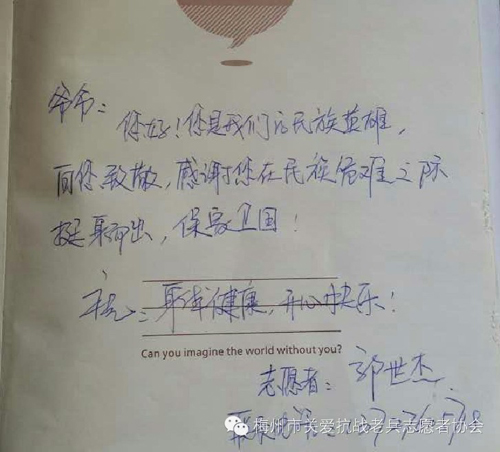 爷爷：
您好！您是我们的民族英雄，
向您致敬，感谢您在民族危难之际
挺身而出，保家卫国！
祝：身体健康，开心快乐！
Can you imagine the world without you?
志愿者：郭世杰
梅州市关爱抗战老兵志愿者协会